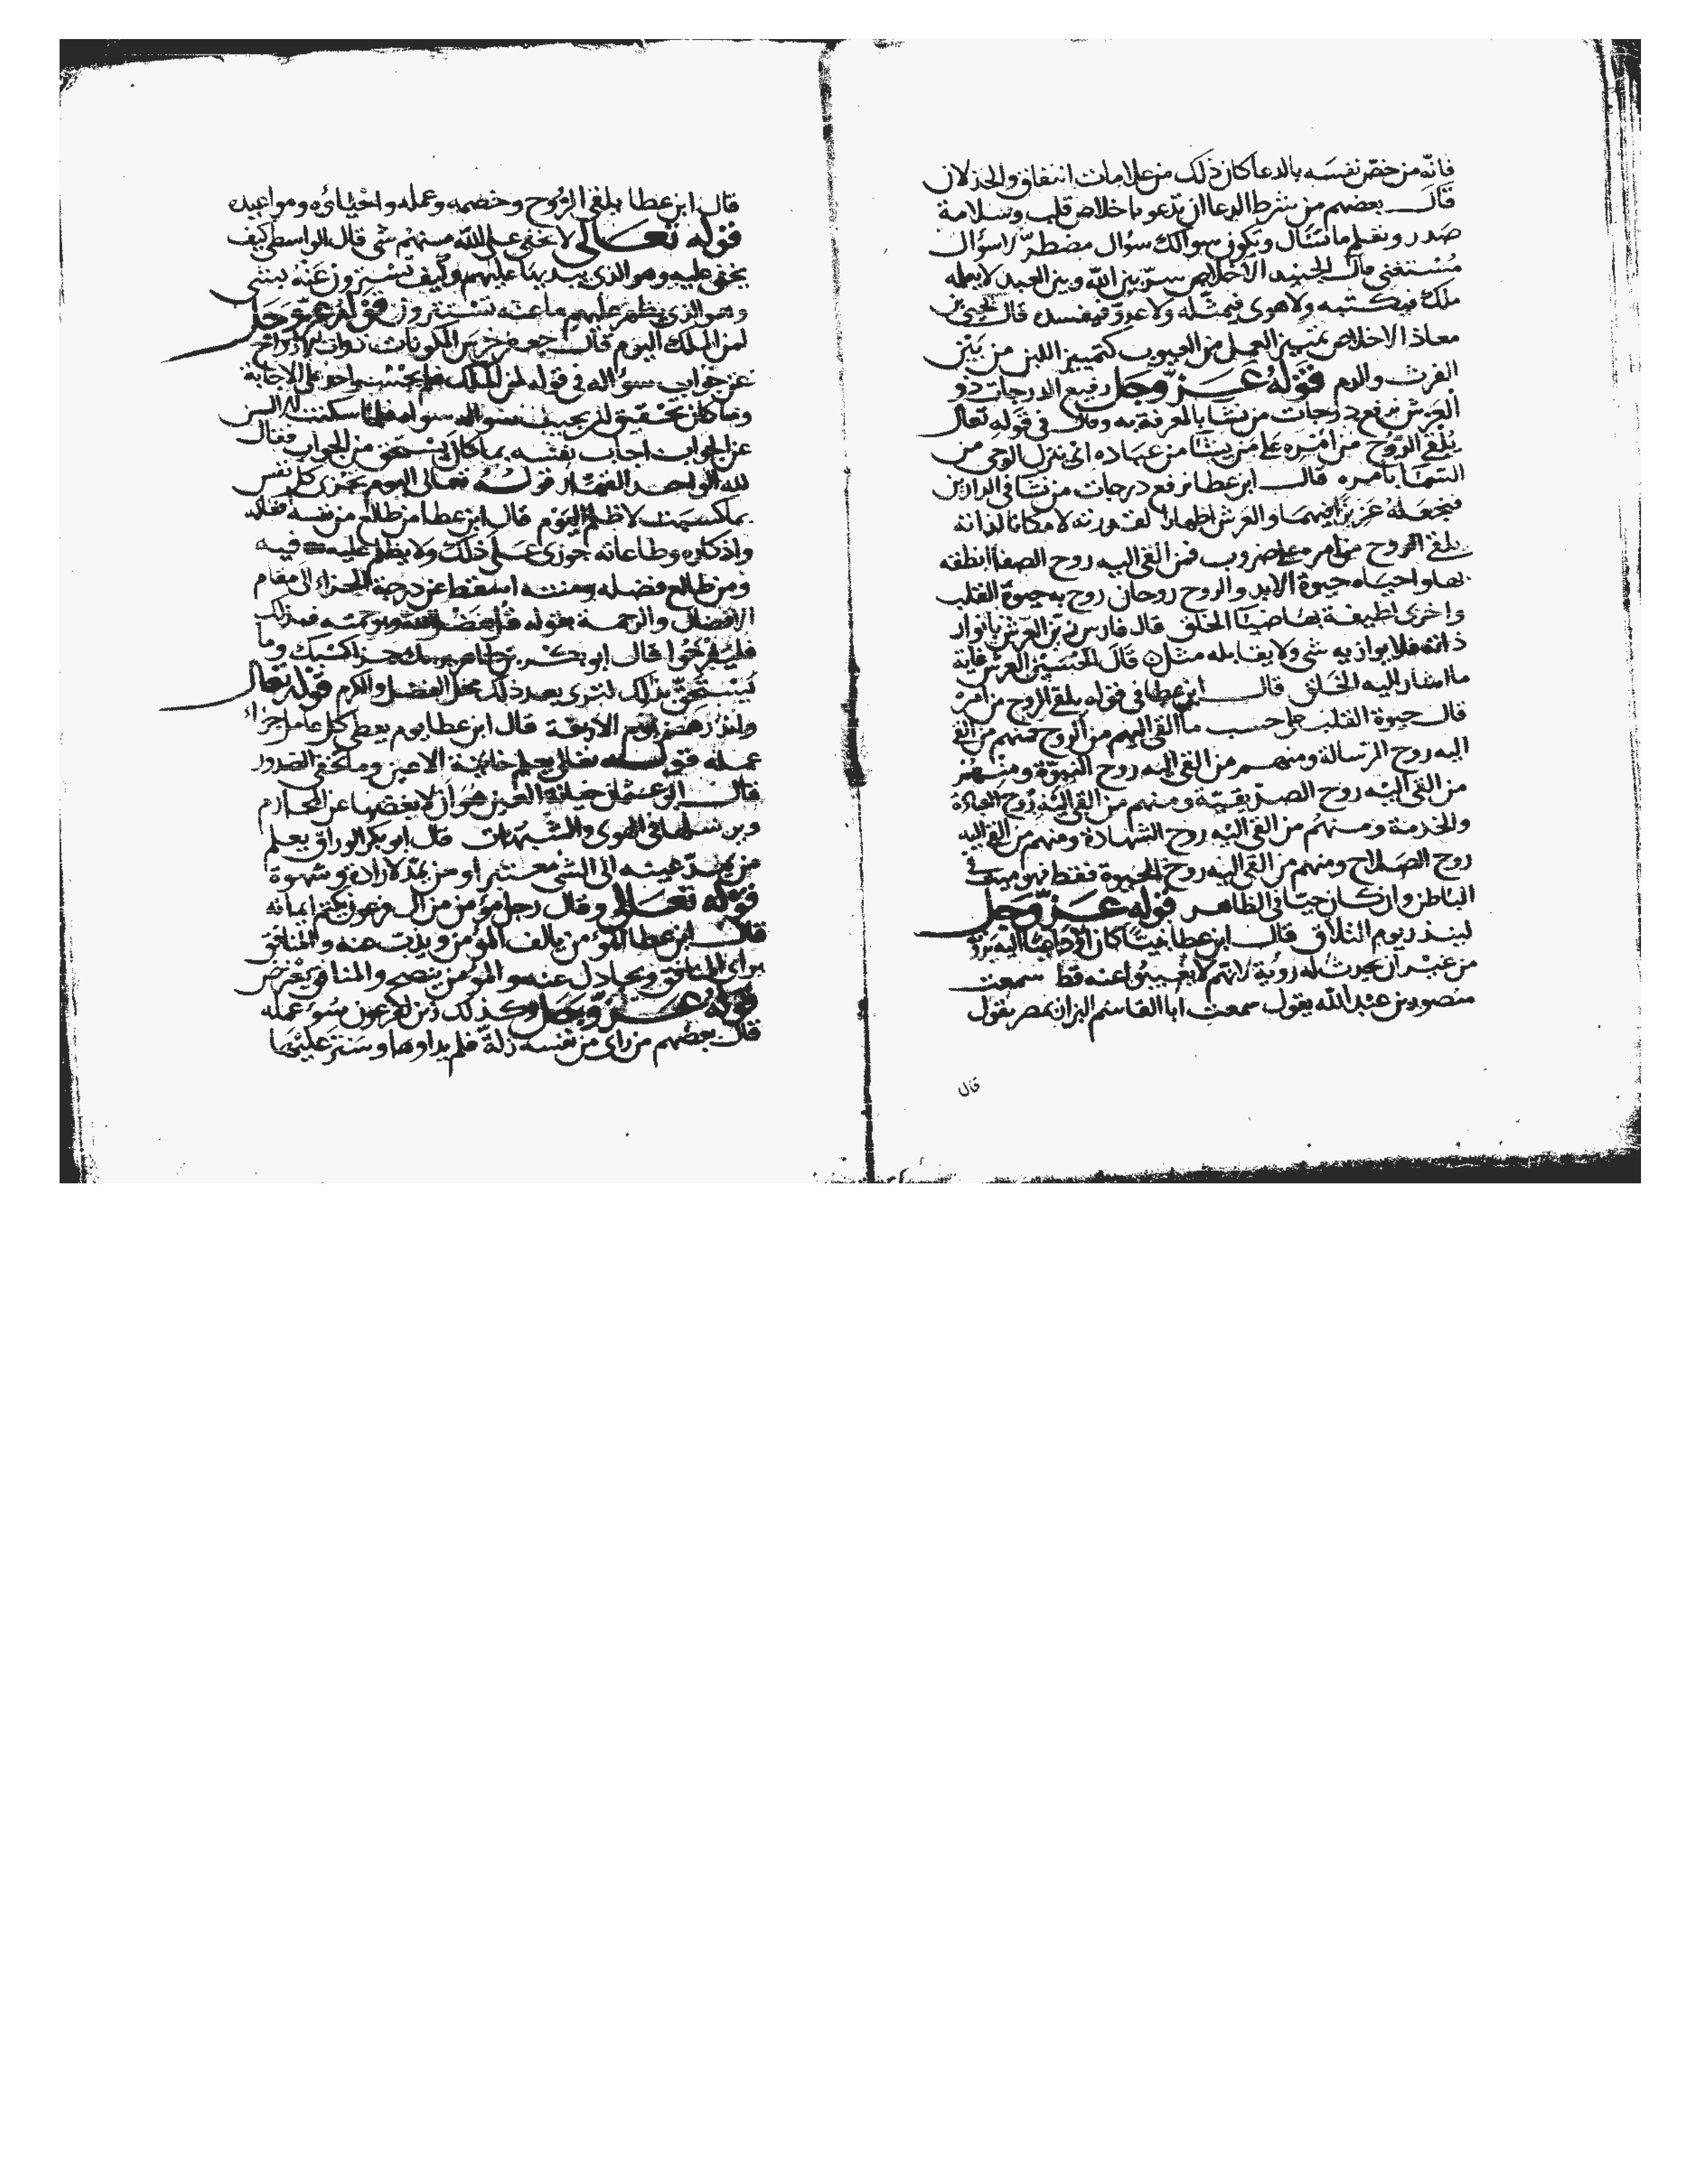 فانه من خصّ نفسه بالدعا كان ذلك من علامات النفاق والخذلان
قال بعضهم من شرط الدعا ان تدعو باخلاص قلب وسلامة
صدر وتعلم ما تسئال وتكون سوالك سؤال مضطرّ لا سؤال
مستغنى قال الجنيد الاخلاص سرّ بين الله وبين العبد لا يعلمه
ملك فيكتبه ولا هوى فيمثله ولا عدوّ فيفسده قال يحيى بن
معاذ الاخلاص تمييز العمل من العيوب كتمييز اللبن من بين
الفرث والدم قوله عز وجل رفيع الدرجات ذو
العرش نرفع درجات من نشا بالمعرفة به وقال فى قوله تعالى
يلقى الروح من امره على من يشا من عباده اى ينزل الوحى من
السما بامره قال ابن عطا نرفع درجات من نشا فى الدارين
فنجعله عزيزا فيهما والعرش اظهارا لقدرته لا مكانا لذاته
يلقى الروح من امره على ضروب فمن القى اليه روح الصفا انطقه
بها واحياه حيوة الابد والروح روحان روح به حيوة القلب
واخرى لطيفة بها ضيا الخلق قال فارس زين العرش بانوار
ذاته فلا يوازيه شى ولا يقابله مثل قال الحسين العرش غاية
ما اشار اليه الخلق قال ابن عطا فى قوله يلقى الروح من امره
قال حيوة القلب على حسب ما القى اليهم من الروح فمنهم من القى
اليه روح الرسالة ومنهم من القى اليه روح النبوة ومنهم
من القى اليه روح الصديقية ومنهم من القى اليه روح العبادة
والخدمة ومنهم من القى اليه روح الشهادة ومنهم من القى اليه
روح الصلاح ومنهم من القى اليه روح الحيوة فقط فهو ميت فى
الباطن وان كان حيا فى الظاهر قوله عز وجل
لينذر يوم التلاق قال ابن عطا
من غير ان يحدث له رؤية لانهم لا يغيبوا عنه قط سمعت
منصور بن عبد الله يقول سمعت ابا القاسم البزاز بمصر يقول
قال
قال ابن عطا يلقى الروح وخصمه وعمله واحيائه ومواعيده
قوله تعالى لا يخفى على الله منهم شى قال الواسطى كيف
يخفى عليه وهو الذى يبدى بنا عليهم وكيف تستترون عنه بشى
وهو الذى يظهر عليهم ما عنه تستترون قوله عز وجل
لمن الملك اليوم قال جعفر خرس المكونات ذوات الارواح
عن جواب سؤاله فى قوله لمن الملك فلم يجسر واحد على الاجابة
وما كان بحقيق ان يجيب سواله سواه فلما سكتت الالسن
عن الجواب اجاب نفسه بما كان يستحق من الجواب فقال
لله الواحد القهار قوله تعالى اليوم تجزى كل نفس
بما كسبت لا ظلم اليوم قال ابن عطا من طالع من نفسه افعاله
واذكاره وطاعاته جوزى على ذلك ولا يظلم عليه فيه
ومن طالع فضله ومنته اسقط عن درجة الجزاء الى مقام
الافضال والرحمة بقوله قل بفضل الله وبرحمته فبذلك
فليفرحوا قال ابو بكر بن طاهر جزا كسبك وما
تستحق بذلك لترى بعد ذلك محل الفضل والكرم قوله تعالى
وانذرهم يوم الازفة قال ابن عطا يوم يعطى كل عامل جزاء
عمله قوله تعالى يعلم خائنة الاعين وما تخفى الصدور
قال ابو عثمان خيانة العين هو ان لا يغضها عن المحارم
ويرسلها فى الهوى والشبهات قال ابو بكر الوراق يعلم
من يمد عينه الى الشى معتبرا ومن يمد لارادة وشهوة
قوله تعالى وقال رجل مؤمن من آل فرعون يكتم ايمانه
قال ابن عطا المؤمن يالف المؤمن ويذب عنه والمنافق
ويجادل عنه والمؤمن ينصح والمنافق
قوله عز وجل وكذلك زين لفرعون سوء عمله
قال بعضهم من راى من نفسه زلة فلم يداوها وستر عليها